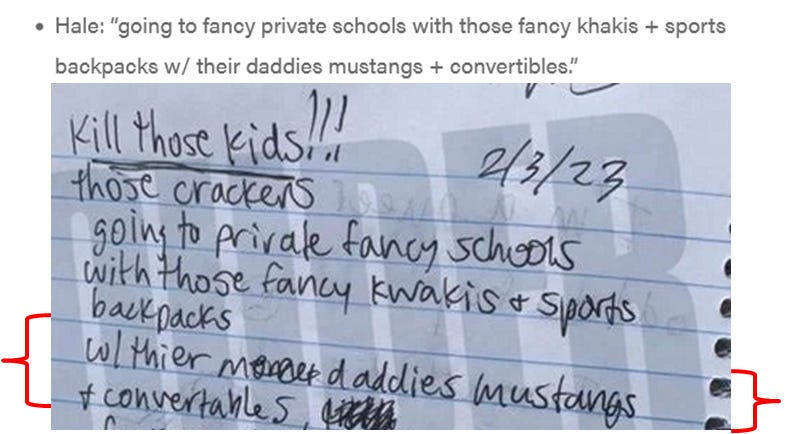 Hale: “going to fancy private schools with those fancy khakis + sports
backpacks w/ their daddies mustangs + convertibles.”
Kill those kids!!!
2/3/23
those crackers
going to private fancy schools
with those fancy kwakis + sports
backpacks
w/ thier daddies mustangs
+ convertables